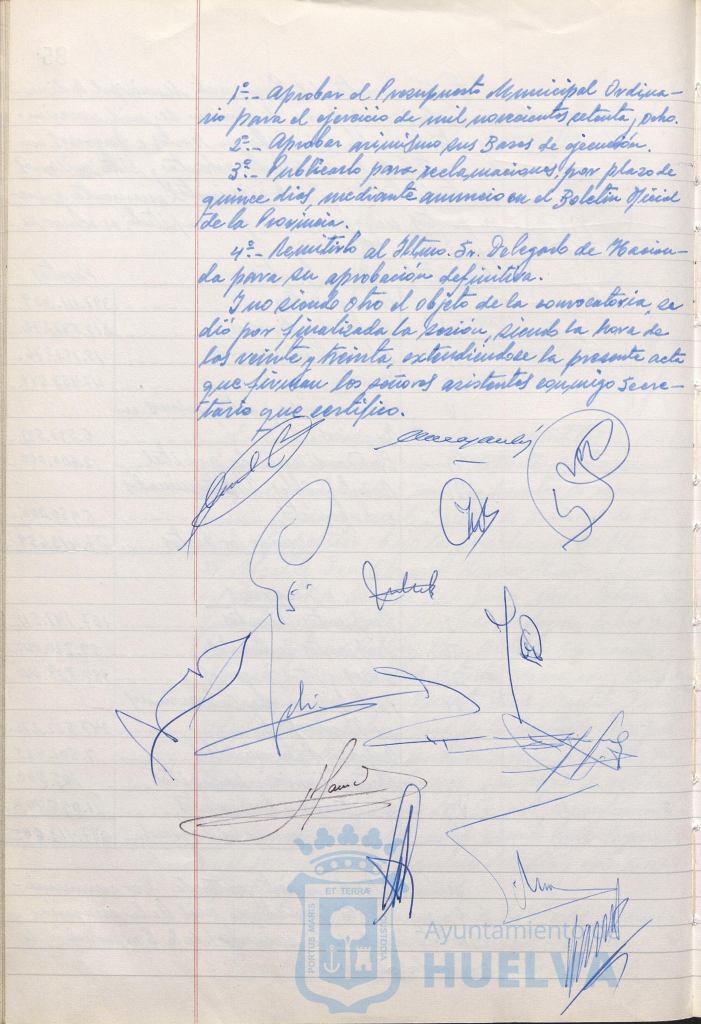 1º.- Aprobar el Presupuesto Municipal Ordina-
rio para el ejercicio de mil novecientos setenta y ocho.
2º.- Aprobar asimismo sus Bases de ejecución.
3º.- Publicarlo para reclamaciones, por plazo de
quince dias, mediante anuncio en el Boletin Oficial
de la Provincia.
4º.- Remitirlo al Iltmo. Sr. Delegado de Hacien-
da para su aprobación definitiva.
Y no siendo otro el objeto de la convocatoria, se
dió por finalizada la sesión, siendo la hora de
las veinte y treinta, extendiendose la presente acta
que firman los señores asistentes conmigo Secre-
tario que certifico.
ET TERRÆ
PORTUS MARIS
CUSTODIA
Ayuntamiento de
HUELVA